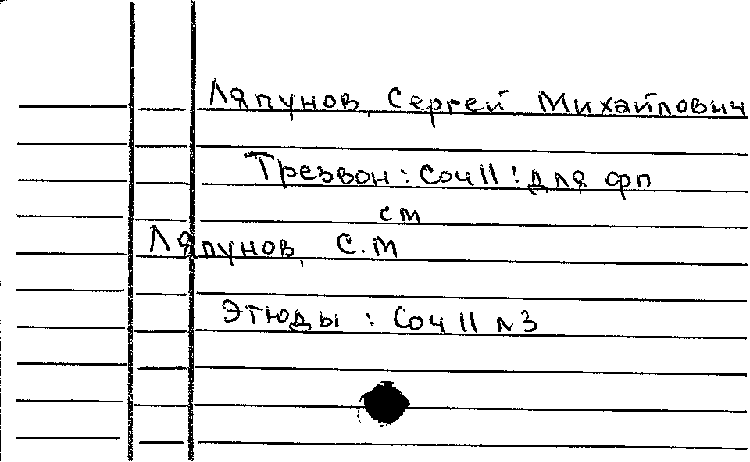 Ляпунов, Сергей Михайлович
Трезвон: Соч 11: для фп
см
Ляпунов, С.М
Этюды: Соч 11 №3